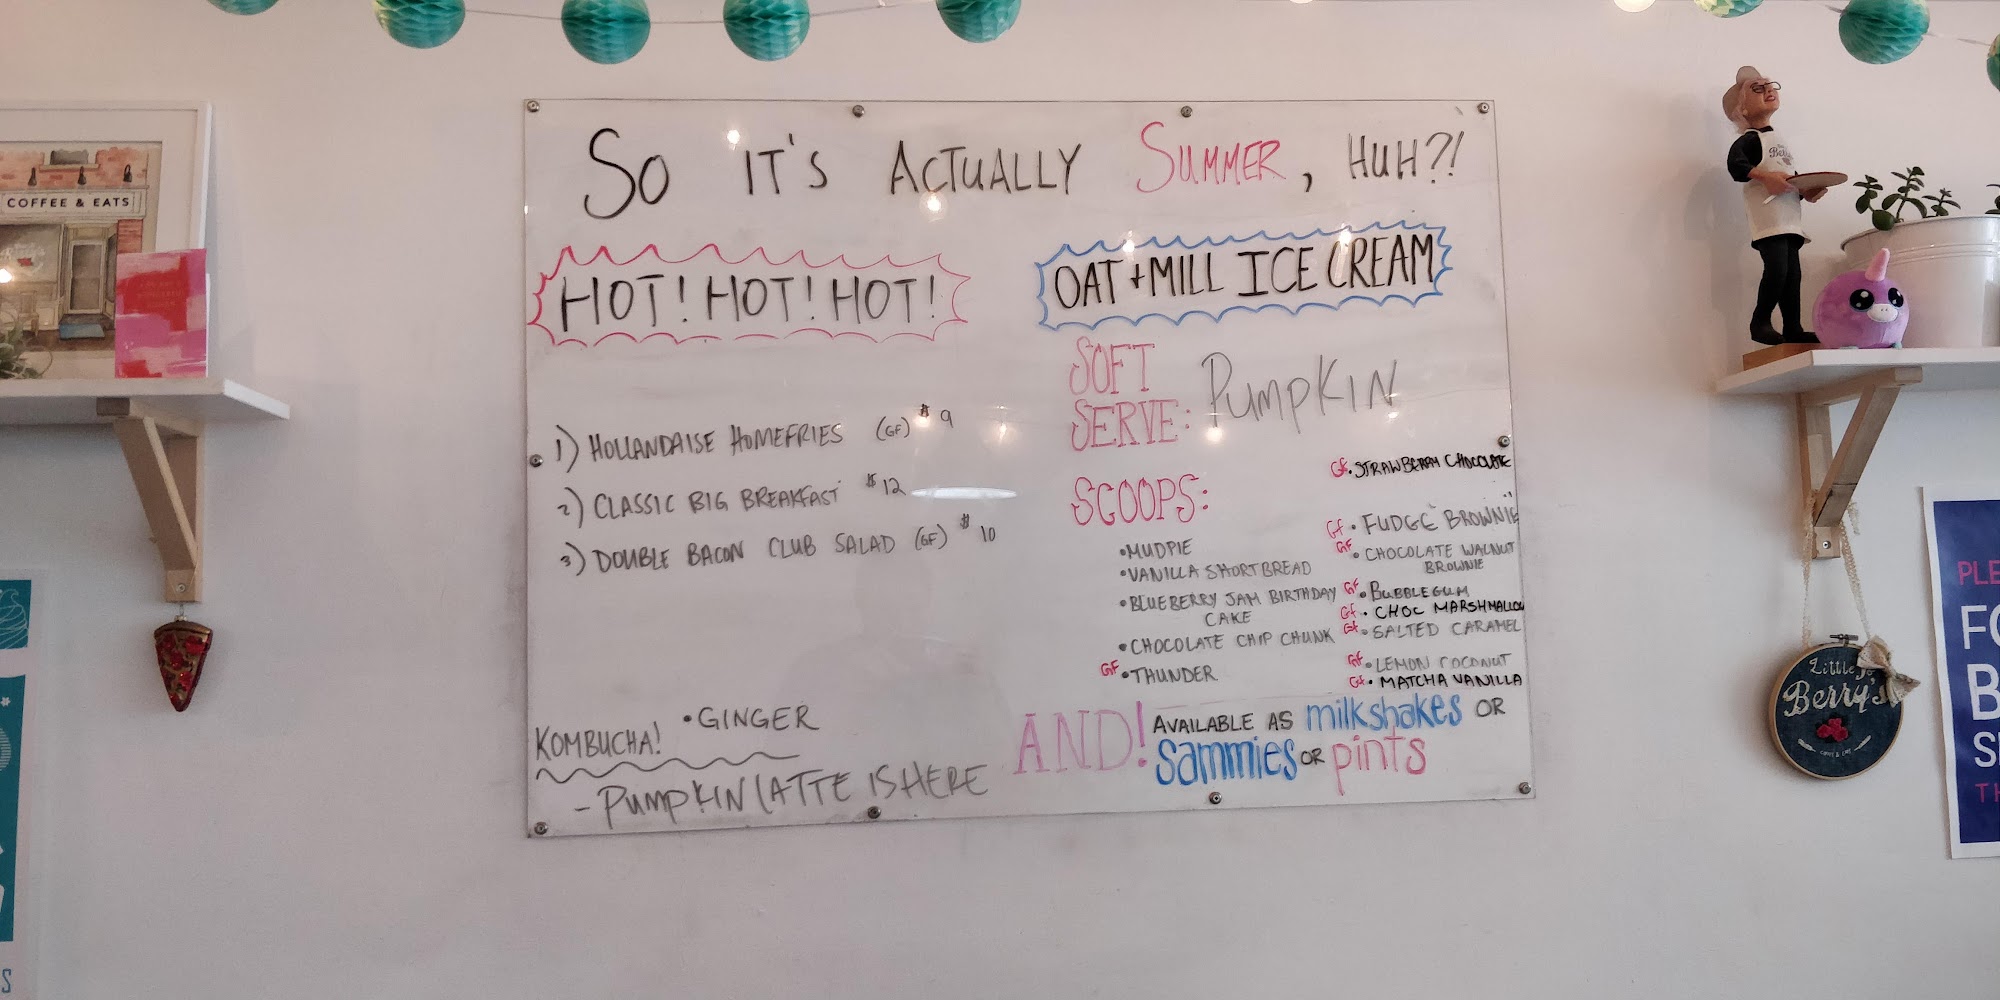 SO IT'S ACTUALLY SUMMER, HUH?!
HOT! HOT! HOT!
1) HOLLANDAISE HOMEFRIES (GF) $9
2) CLASSIC BIG BREAKFAST $12
3) DOUBLE BACON CLUB SALAD (GF) $10
KOMBUCHA! • GINGER
- PUMPKIN LATTE IS HERE
OAT + MILL ICE CREAM
SOFT
SERVE: PUMPKIN
SCOOPS:
• MUDPIE
• VANILLA SHORTBREAD
• BLUEBERRY JAM BIRTHDAY
CAKE
• CHOCOLATE CHIP CHUNK
GF • THUNDER
GF • STRAWBERRY CHOCOLATE
GF • FUDGE BROWNIE
GF • CHOCOLATE WALNUT
BROWNIE
GF • BUBBLEGUM
GF • CHOC MARSHMALLOW
GF • SALTED CARAMEL
GF • LEMON COCONUT
GF • MATCHA VANILLA
AND! AVAILABLE AS milkshakes OR
sammies OR pints
COFFEE & EATS
Little Jo
Berry's
PLE
FO
B
S
TH
S